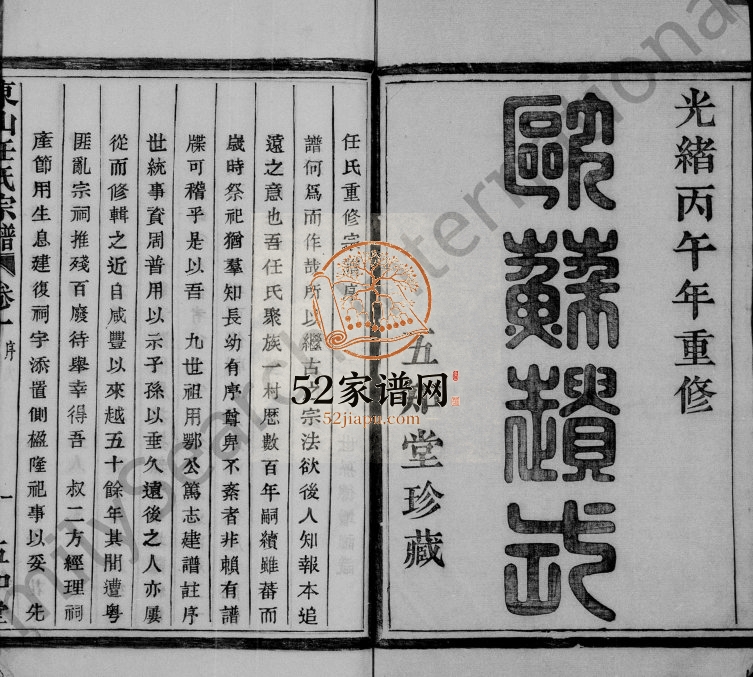 光緒丙午年重修
歐蘇
五 堂珍藏
任氏重修宗 序
譜何爲而作哉所以繼古 宗法欲後人知報本追
遠之意也吾任氏聚族一村歷數百年嗣續雖蕃而
歲時祭祀猶羣知長幼有序尊卑不紊者非賴有譜
牒可稽乎是以吾 九世祖用鄂公篤志建譜註序
世統事資周普用以示子孫以垂久遠後之人亦屢
從而修輯之近自咸豐以來越五十餘年其間遭粤
匪亂宗祠推殘百廢待舉幸得吾 叔二方經理祠
產節用生息建復祠宇添置側楹隆祀事以妥 先
東山任氏宗譜 卷一 序 一 五 堂
52家谱网
52jiapu.com
milySearch International